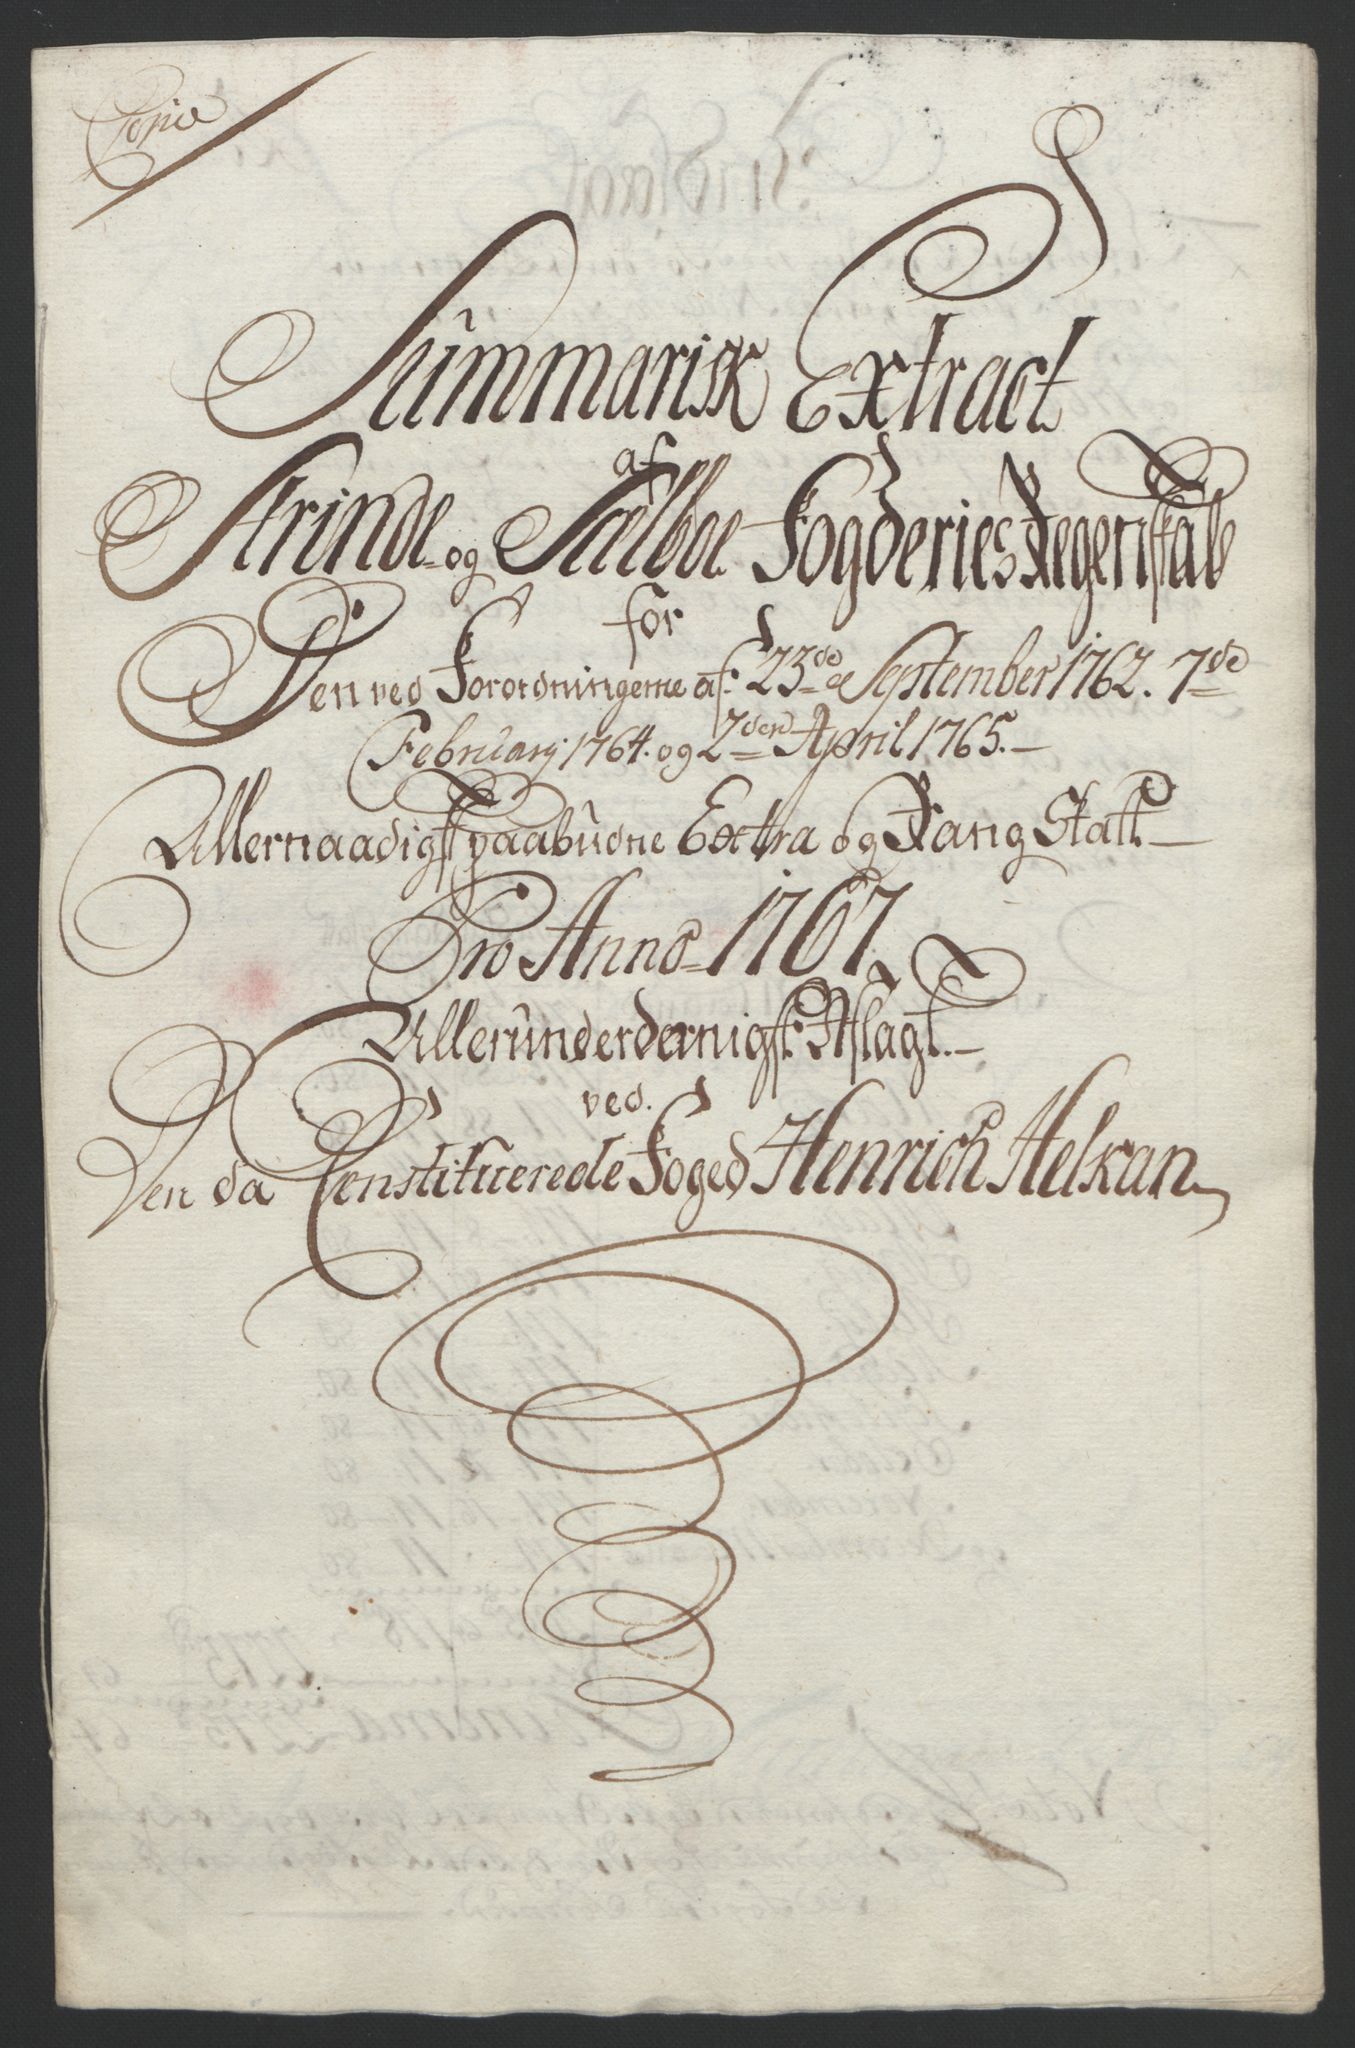 Copie
Summarisk Extract
af
Strinde- og Sælboe Fogderies Regenskab
for
Den ved Forordningerne af 23de September 1762. 7de
February 1764. og 2den April 1765.
Allernaadigst paabudne Extra og Rang Skatt
Pro Anno 1767.
Allerunderdernigst Aflagt.
ved.
Den da Constituerede Foged Henrich Helkan